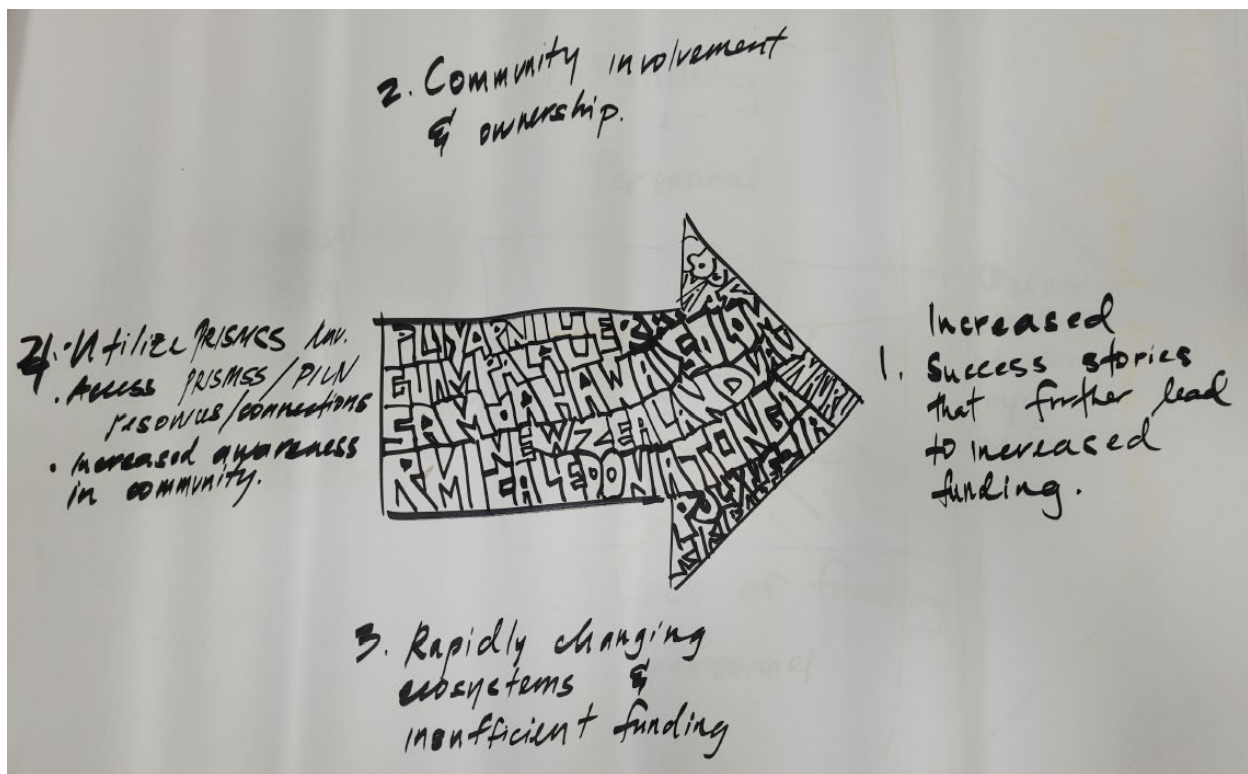 2. Community involvement
& ownership.
4. • Utilize PRISMSS
• Access PRISMSS/PILN
resources/connections
• Increased awareness
in community.
GUAM PALAU
SAMOA HAWAII SOLOMON
NEW ZEALAND VANUATU
RMI CALEDONIA TONGA
1. Increased
Success stories
that further lead
to increased
funding.
3. Rapidly changing
ecosystems &
insufficient funding